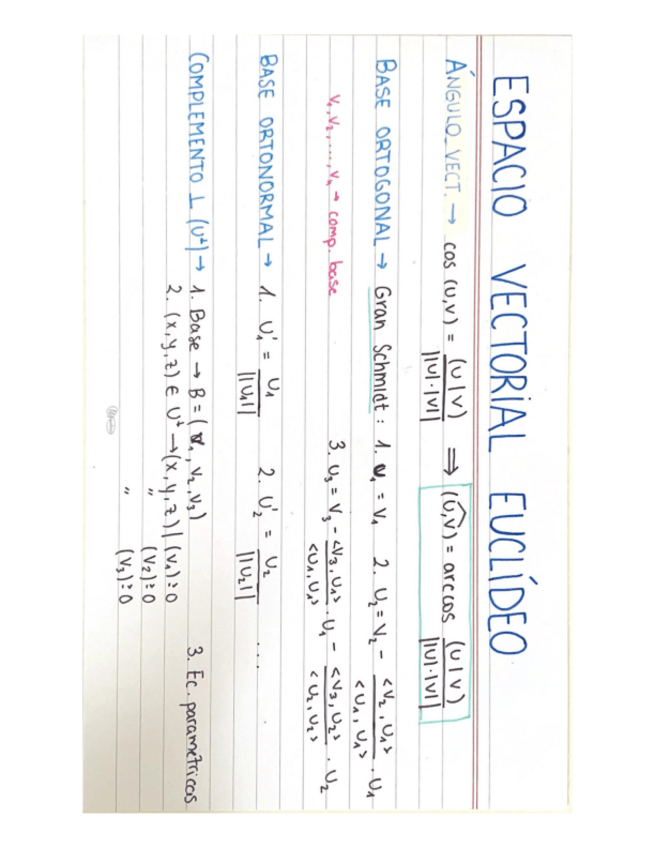 ESPACIO VECTORIAL EUCLÍDEO
ÁNGULO VECT. → cos (U,V) = (U|V) / ||U|·|V|| ⟹ (U,V) = arccos (U|V) / ||U|·|V||
BASE ORTOGONAL → Gran Schmidt: 1. U₁ = V₁ 2. U₂ = V₂ - <V₂, U₁> / <U₁, U₁> · U₁
V₁, V₂, ..., Vₙ → comp. base 3. U₃ = V₃ - <V₃, U₁> / <U₁, U₁> · U₁ - <V₃, U₂> / <U₂, U₂> · U₂
BASE ORTONORMAL → 1. U₁' = U₁ / ||U₁|| 2. U₂' = U₂ / ||U₂|| ...
COMPLEMENTO ⊥ (U⊥) → 1. Base → B = (V₁, V₂, V₃) 3. Ec. parametricas
2. (x, y, z) ∈ U⊥ → (x, y, z) | (V₁) = 0
" (V₂) = 0
" (V₃) = 0